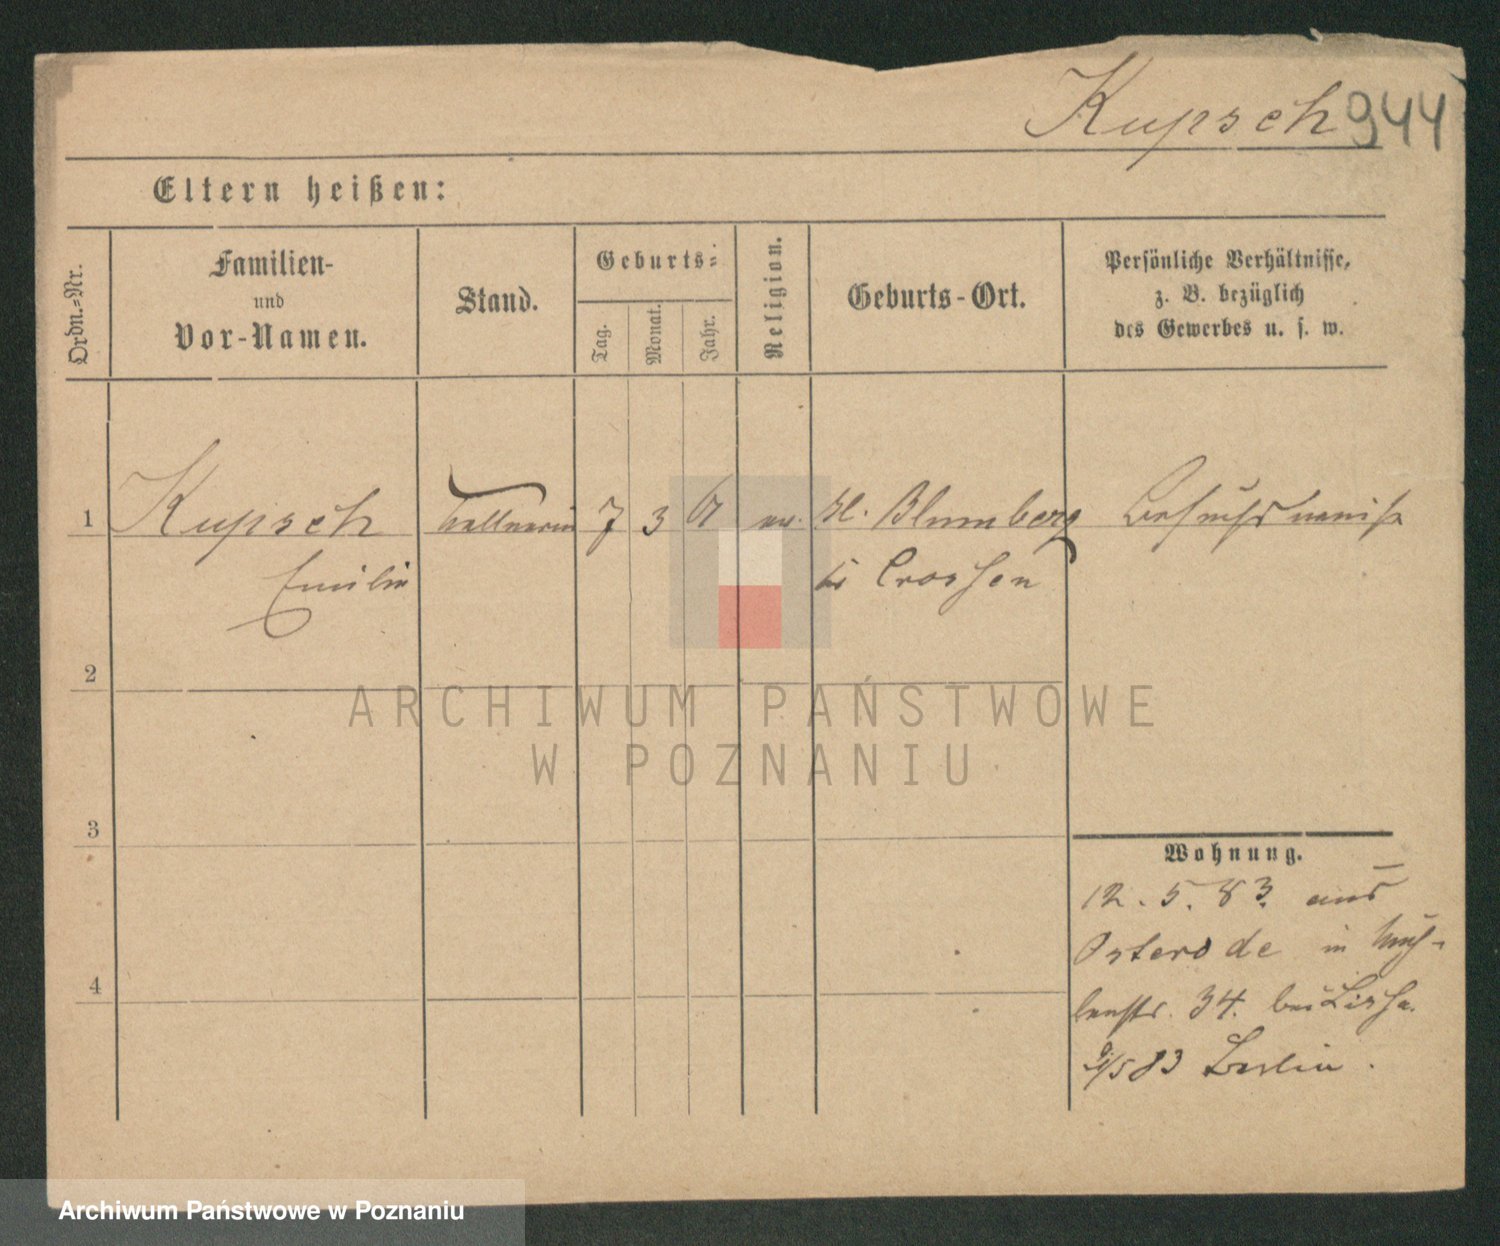 Kupsch 944
Eltern heißen:
Ordn.-Nr.
Familien-
und
Vor-Namen.
Stand.
Geburts-
Tag.
Monat.
Jahr.
Religion.
Geburts-Ort.
Persönliche Verhältnisse,
z. B. bezüglich
des Gewerbes u. s. w.
1 Kupsch Kellnerin 7 3 61 ev. Kl. Blumberg
Emilie bei Crossen
2
ARCHIWUM PAŃSTWOWE
W POZNANIU
3
Wohnung.
12. 5. 83. aus
Osterode in
4
34. bei
83 Berlin.
Archiwum Państwowe w Poznaniu